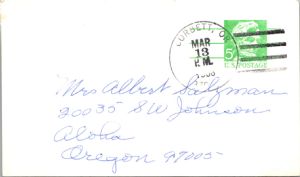 CORBETT, OR.
MAR
13
P.M.
1968
5¢
U.S. POSTAGE
Mrs Albert Salzman
20035 SW Johnson
Aloha
Oregon 97005